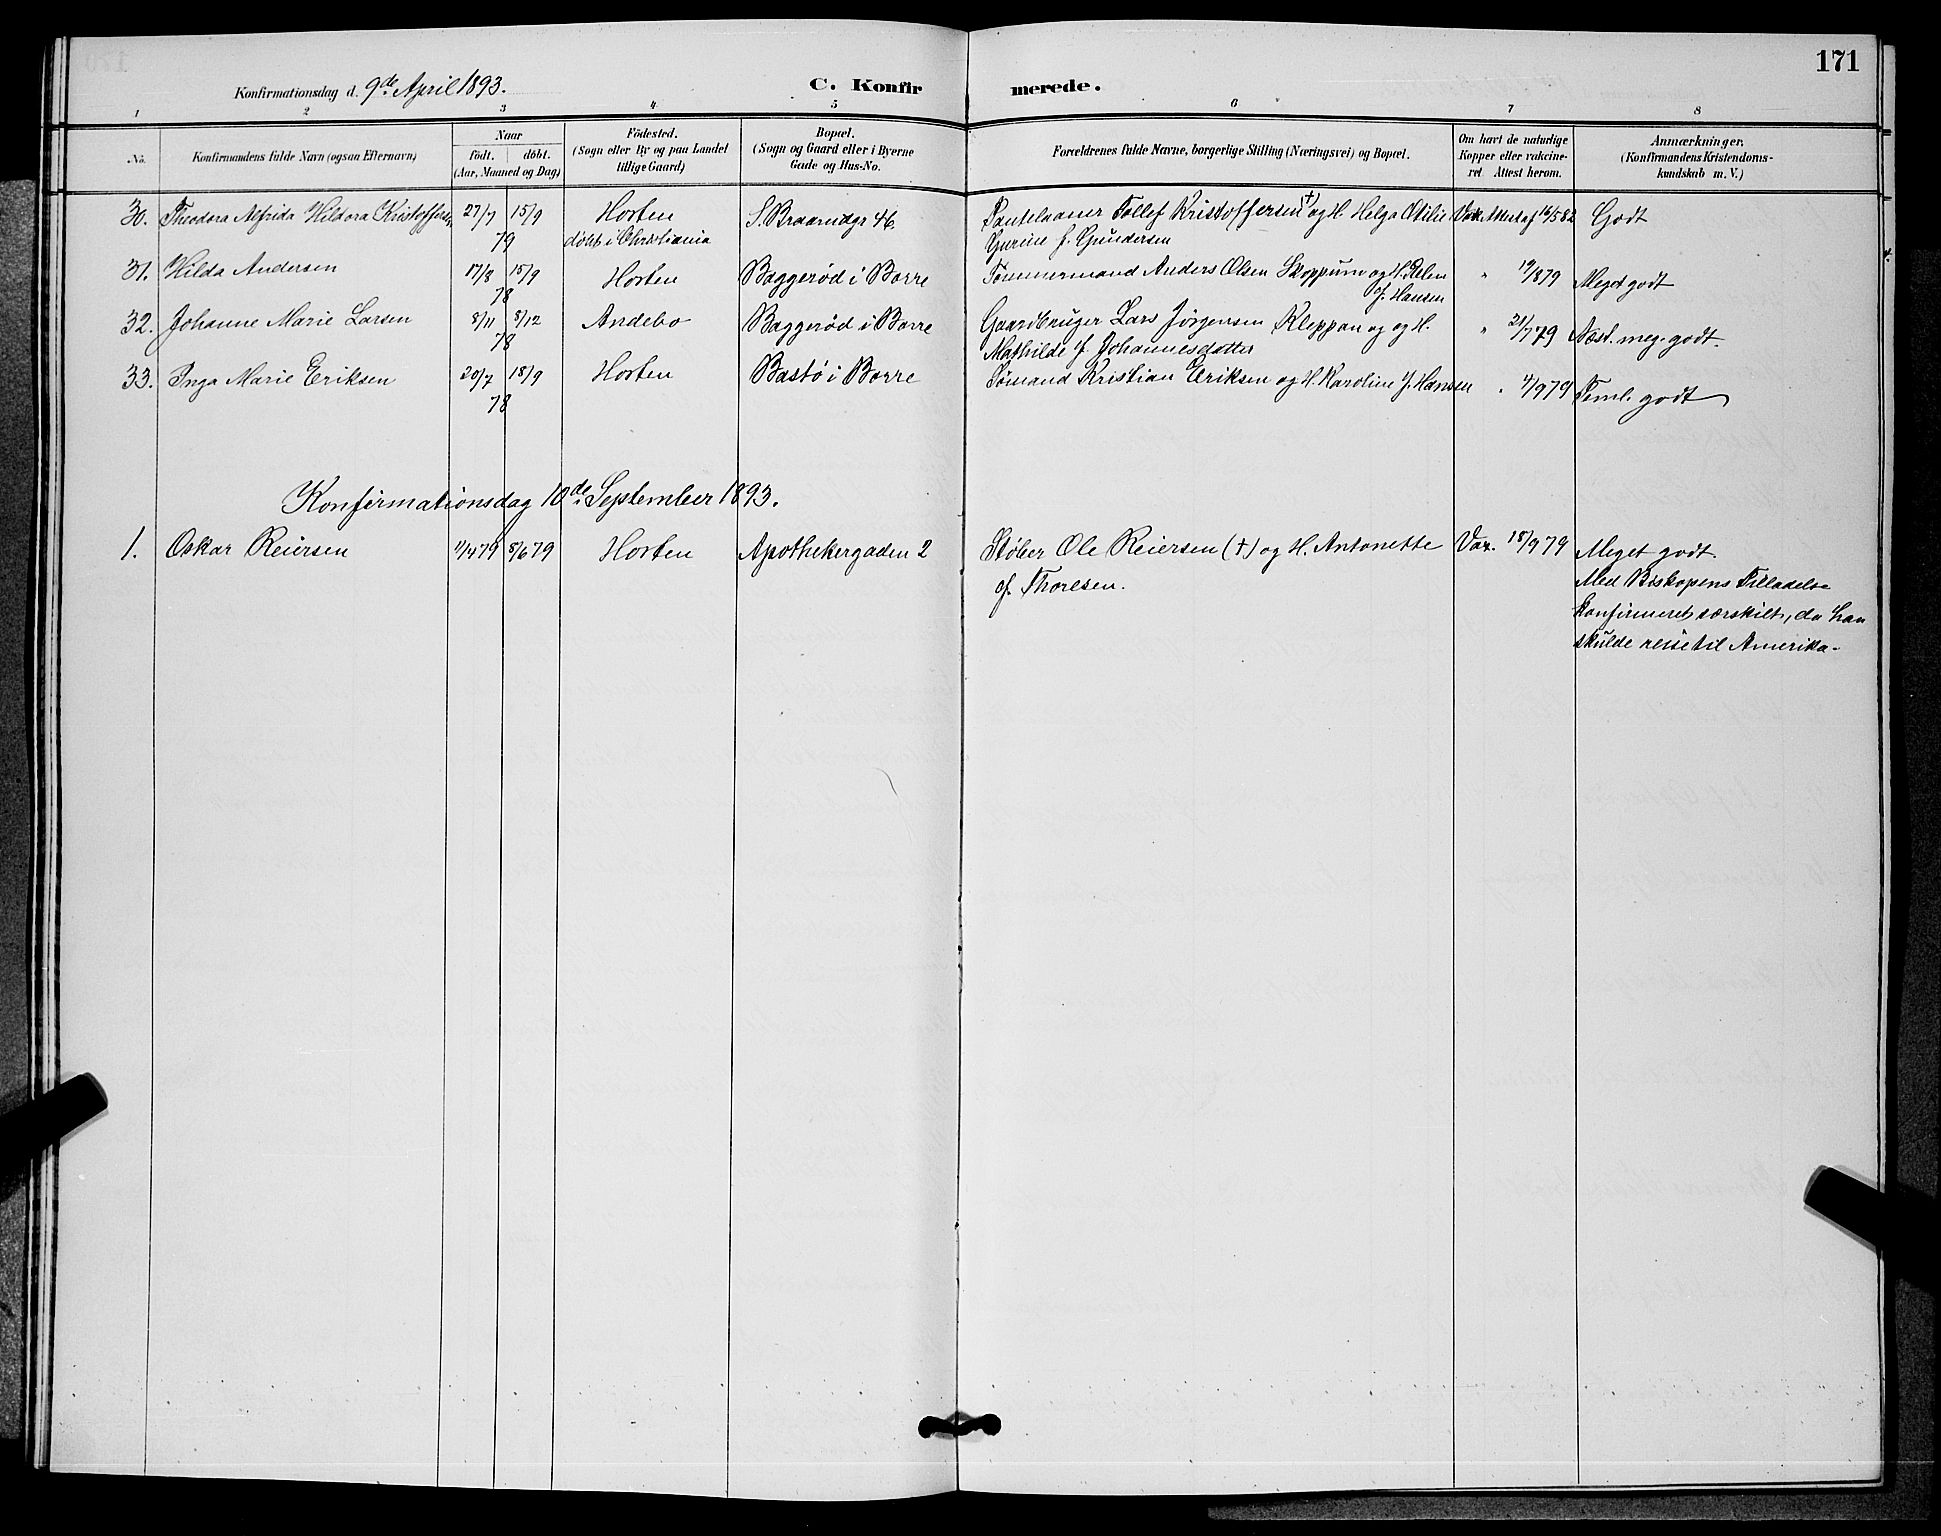 171
Konfirmationsdag d. 9de April 1893. C. Konfirmerede.
1 2 3 4 5 6 7 8
No. Konfirmandens fulde Navn (ogsaa Efternavn) Naar födt. döbt. (Aar, Maaned og Dag) Födested. (Sogn eller By og paa Landet tillige Gaard) Bopæl. (Sogn og Gaard eller i Byerne Gade og Hus-No. Forældrenes fulde Navne, borgerlige Stilling (Næringsvei) og Bopæl. Om havt de naturlige Kopper eller vakcineret. Attest herom. Anmærkninger. (Konfirmandens Kristendomskundskab m. V.)
30. Theodora Alfrida Hildora Kristoffersen 27/7 15/9 Horten S. Braarudgr 46. Tollef Kristoffersen † og H. Helga Otilie Vak. Attest af 16/5 82 Godt
79 døbt i Christiania Gurine f. Gundersen
31. Hilda Andersen 17/8 15/9 Horten Baggerød i Borre Tømmermand Anders Olsen Skoppum og H. Helen " 19/8 79 Meget godt
78 f. Hansen
32. Johanne Marie Larsen 8/11 8/12 Andebo Baggerød i Borre Gaardbruger Lars Jørgensen Kleppan og og H. " 21/7 79 Næst. meg. godt
78 Mathilde f. Johannesdatter
33. Inga Marie Eriksen 20/7 18/9 Horten Bastø i Borre Sømand Kristian Eriksen og H. Karoline f. Hansen " 4/9 79 Teml. godt
78
Konfirmationsdag 10de September 1893.
1. Oskar Reiersen 11/4 79 8/6 79 Horten Apothekergaden 2 Støber Ole Reiersen (†) og H. Antonette Vax. 18/9 79 Meget godt.
f. Thoresen. Med Biskopens Tilladelse
konfirmeret særskilt, da han
skulde reise til Amerika.